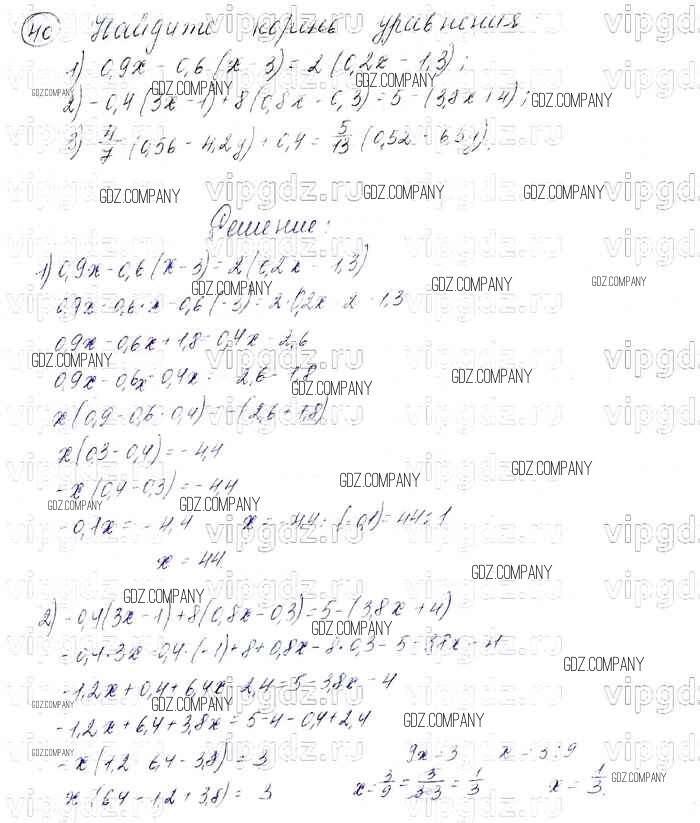 40 Найдите корень уравнения:
1) 0,9x - 0,6(x - 3) = 2(0,2x - 1,3);
2) -0,4(3x - 1) + 8(0,8x - 0,3) = 5 - (3,8x + 4);
3) 4/7 (0,56 - 4,2y) + 0,4 = 5/13 (0,52 - 6,5y).
Решение:
1) 0,9x - 0,6(x - 3) = 2(0,2x - 1,3)
0,9x - 0,6·x - 0,6(-3) = 2·0,2x - 2·1,3
0,9x - 0,6x + 1,8 = 0,4x - 2,6
0,9x - 0,6x - 0,4x = -2,6 - 1,8
x(0,9 - 0,6 - 0,4) = -(2,6 + 1,8)
x(0,3 - 0,4) = -4,4
-x(0,4 - 0,3) = -4,4
-0,1x = -4,4 x = -4,4 : (-0,1) = 44 : 1
x = 44
2) -0,4(3x - 1) + 8(0,8x - 0,3) = 5 - (3,8x + 4)
-0,4·3x - 0,4·(-1) + 8+0,8x - 8·0,3 = 5 - 3,8x - 4
-1,2x + 0,4 + 6,4x - 2,4 = 5 - 3,8x - 4
-1,2x + 6,4 + 3,8x = 5 - 4 - 0,4 + 2,4
-x(1,2 - 6,4 - 3,8) = 3 9x = 3 x = 3 : 9
x(6,4 - 1,2 + 3,8) = 3 x = 3/9 = 3/3·3 = 1/3 x = 1/3.
vipgdz.ru
GDZ.COMPANY